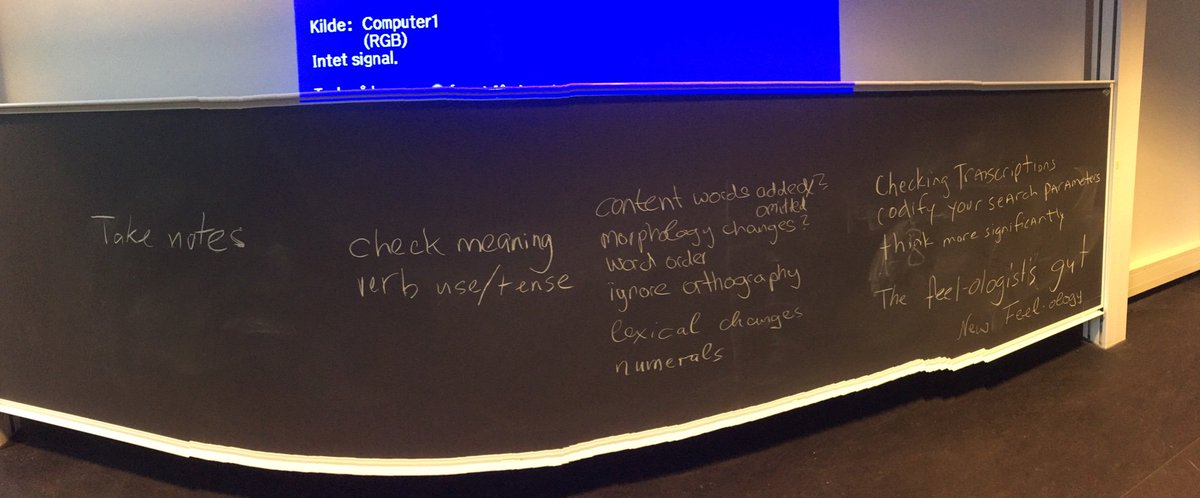 Kilde: Computer1
(RGB)
Intet signal.
Take notes
check meaning
verb use/tense
content words added?
omitted
morphology changes?
word order
ignore orthography
lexical changes
numerals
Checking Transcriptions
codify your search parameters
think more significantly
The feel-ologist's gut
New Feel-ology